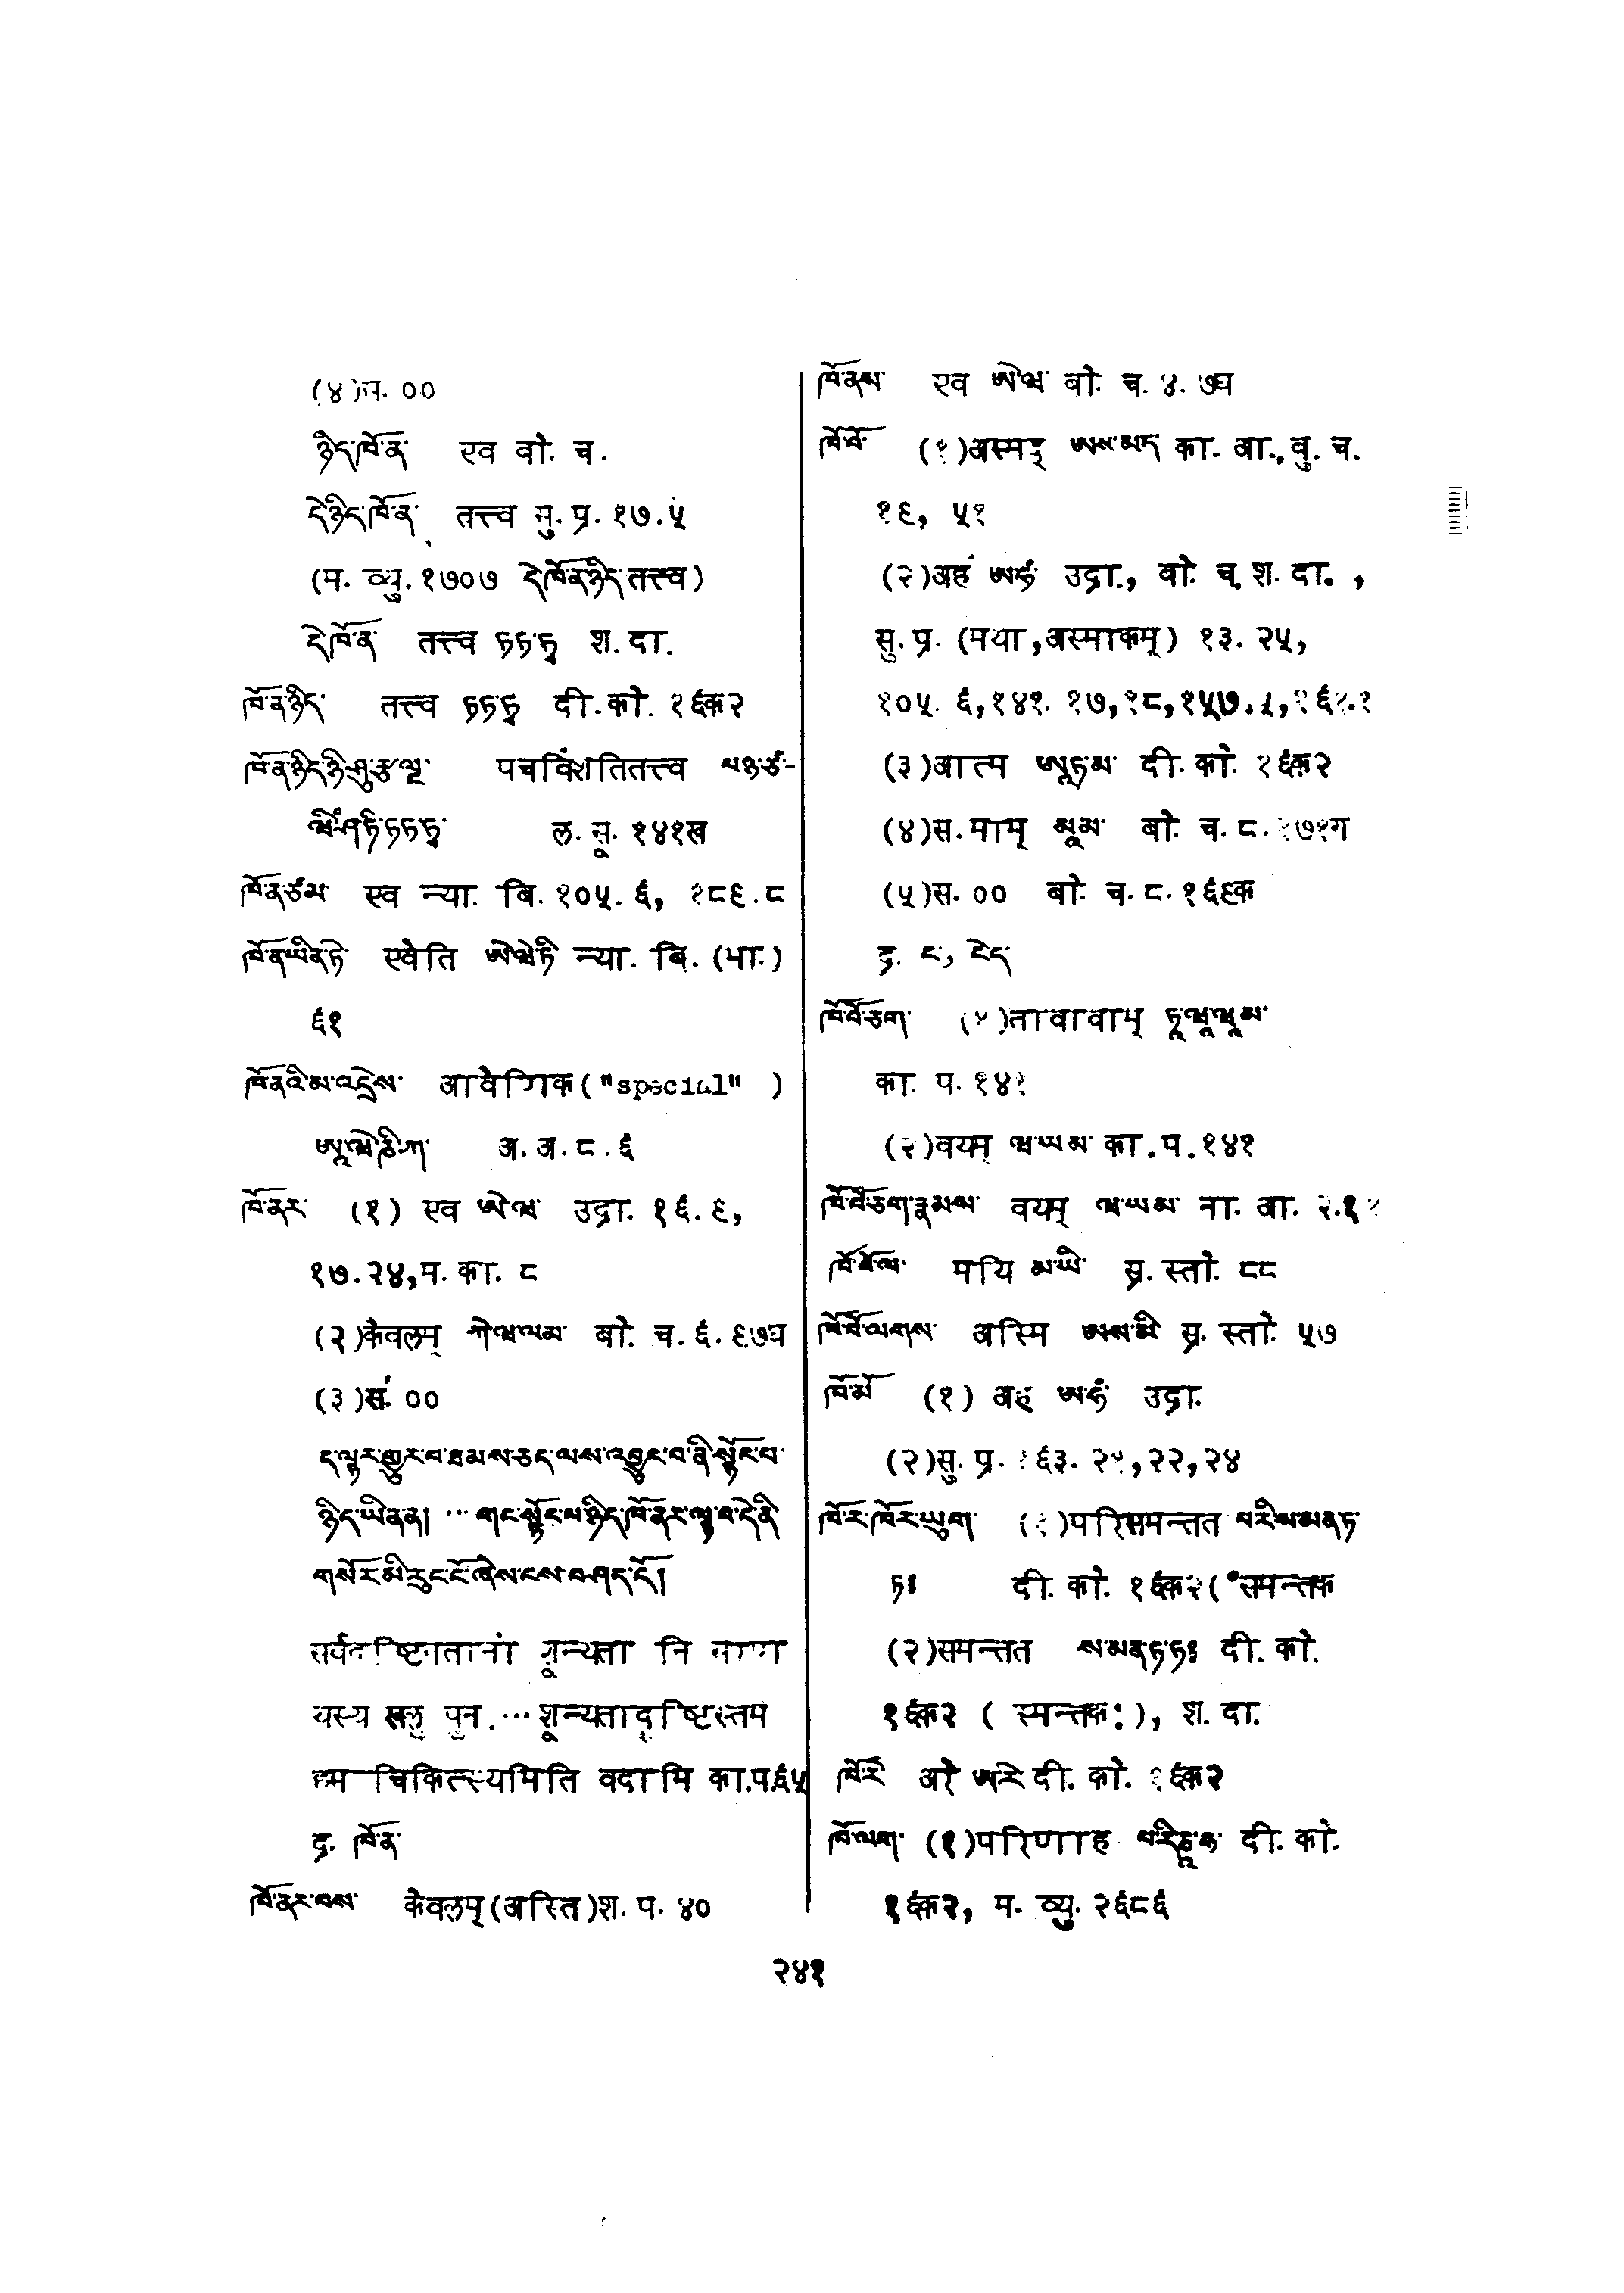 (४) ००
ཉིད་ཁོ་ན་ एव बो. च.
དེ་ཉིད་ཁོ་ན་ तत्त्व सु. प्र. १७.५
(म. व्यु. १७०७ དེ་ཁོ་ན་ཉིད་ तत्त्व)
དེ་ཁོ་ན་ तत्त्व ཏཏཏྭ श. दा.
ཁོ་ན་ཉིད་ तत्त्व ཏཏཏྭ दी. को. १६क२
ཁོ་ན་ཉིད་ཉི་ཤུ་རྩ་ལྔ་ पचविंशतितत्त्व པཉ་ཙཾ-
ཝིཾ་ཤ་ཏི་ཏཏཏྭ་ ल. सू. १४१ख
ཁོ་ན་ཙམ་ एव न्या. बि. १०५. ६, १८९.८
ཁོ་ན་ཡིན་ཏེ་ एवेति ཨེཝེཏི न्या. बि. (भा.)
६१
ཁོ་ནའི་མ་འདྲེས་ आवेणिक ("special" )
ཨཱ་ཝེ་ཎི་ཀ་ अ. अ. ८.६
ཁོ་ནར་ (१) एव ཨེ་ཝ་ उद्रा. १६.९,
१७.२४, म. का. ८
(२)केवलम् ཀེ་ཝ་ལམ་ बो. च. ६. ९७घ
(३)सं. ००
ད་ལྟར་གྱུར་པ་ཐམས་ཅད་ལས་འབྱུང་བ་ནི་སྟོང་པ་
ཉིད་ཡིན་ན། ... གང་སྟོང་པ་ཉིད་ཁོ་ནར་ལྟ་བ་དེ་ནི
གསོ་རོ་མི་རུང་ངོ་ཞེས་ངས་བཤད་དོ།
शून्यता
यस्य खलु पुन. ... शून्यतादृष्टिस्तम
चिकित्स्यमिति वदामि का.प.६५
द्र. ཁོ་ན་
ཁོ་ནར་བས་ केवलम् (अस्ति) श. प. ४०
ཁོ་ནས་ एव ཨེ་ཝ་ बो. च. ४. ७घ
ཁོ་བོ་ (१)अस्मद् ཨས་མད་ का. आ., बु. च.
१९, ५१
(२)अहं ཨ་ཧཾ་ उद्रा., बो. च. श. दा. ,
सु. प्र. (मया, अस्माकम्) १३. २५,
१०५. ६, १४१. १७, १८, १५७.
(३)आत्म ཨཱཏྨ་ दी. को. १६क२
(४)स. माम् མཱམ་ बो. च. ८. १७१ग
(५)स. ०० बो. च. ८. १६९क
द्र. ང་, ངེད་
ཁོ་བོ་ཅག་ तावावाम् ཏཱ་ཝཱ་ཝཱམ་
का. प. १४१
(२)वयम् ཝ་ཡམ་ का. प. १४१
ཁོ་བོ་ཅག་རྣམས་ वयम् ཝ་ཡམ་ ना. आ. २.
ཁོ་བོ་ལ་ मयि མ་ཡི་ स्र. स्तो. ८८
ཁོ་བོ་ལགས་ अस्मि ཨསམི स्र. स्तो. ५७
ཁོ་མོ་ (१) अह ཨ་ཧཾ་ उद्रा.
(२)सु. प्र. १६३. २१, २२, २४
ཁོ་ར་ཁོར་ཡུག་ (१)परिसमन्तत པརིསམནྟ
ཏཿ दी. को. १६क२ ( समन्तक
(२)समन्तत སམནྟཏཿ दी. को.
१६क२ ( स्मन्तक:), श. दा.
ཁོ་རེ་ अरे ཨརེ दी. को. १६क२
ཁོ་ལག་ (१)परिणाह པརིཎཱཧ་ दी. को.
१६क२, म. व्यु. २६८६
२४१